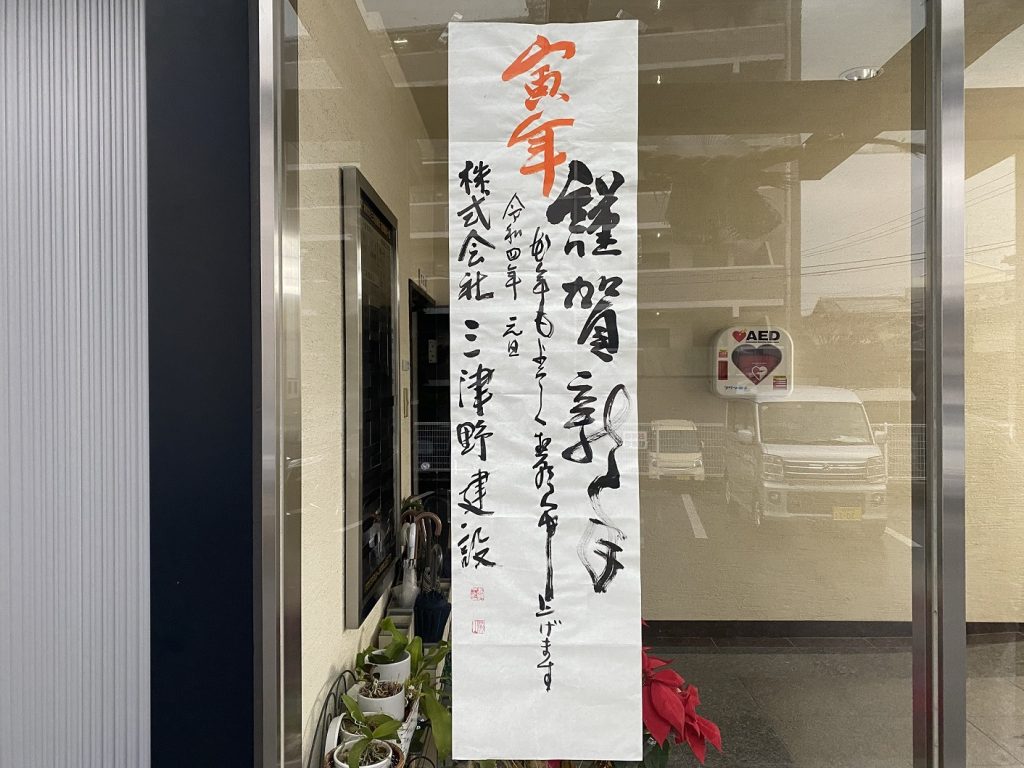 寅年
謹賀新年
本年もよろしくお願い申し上げます
令和四年 元旦
株式会社 三津野建設
AED